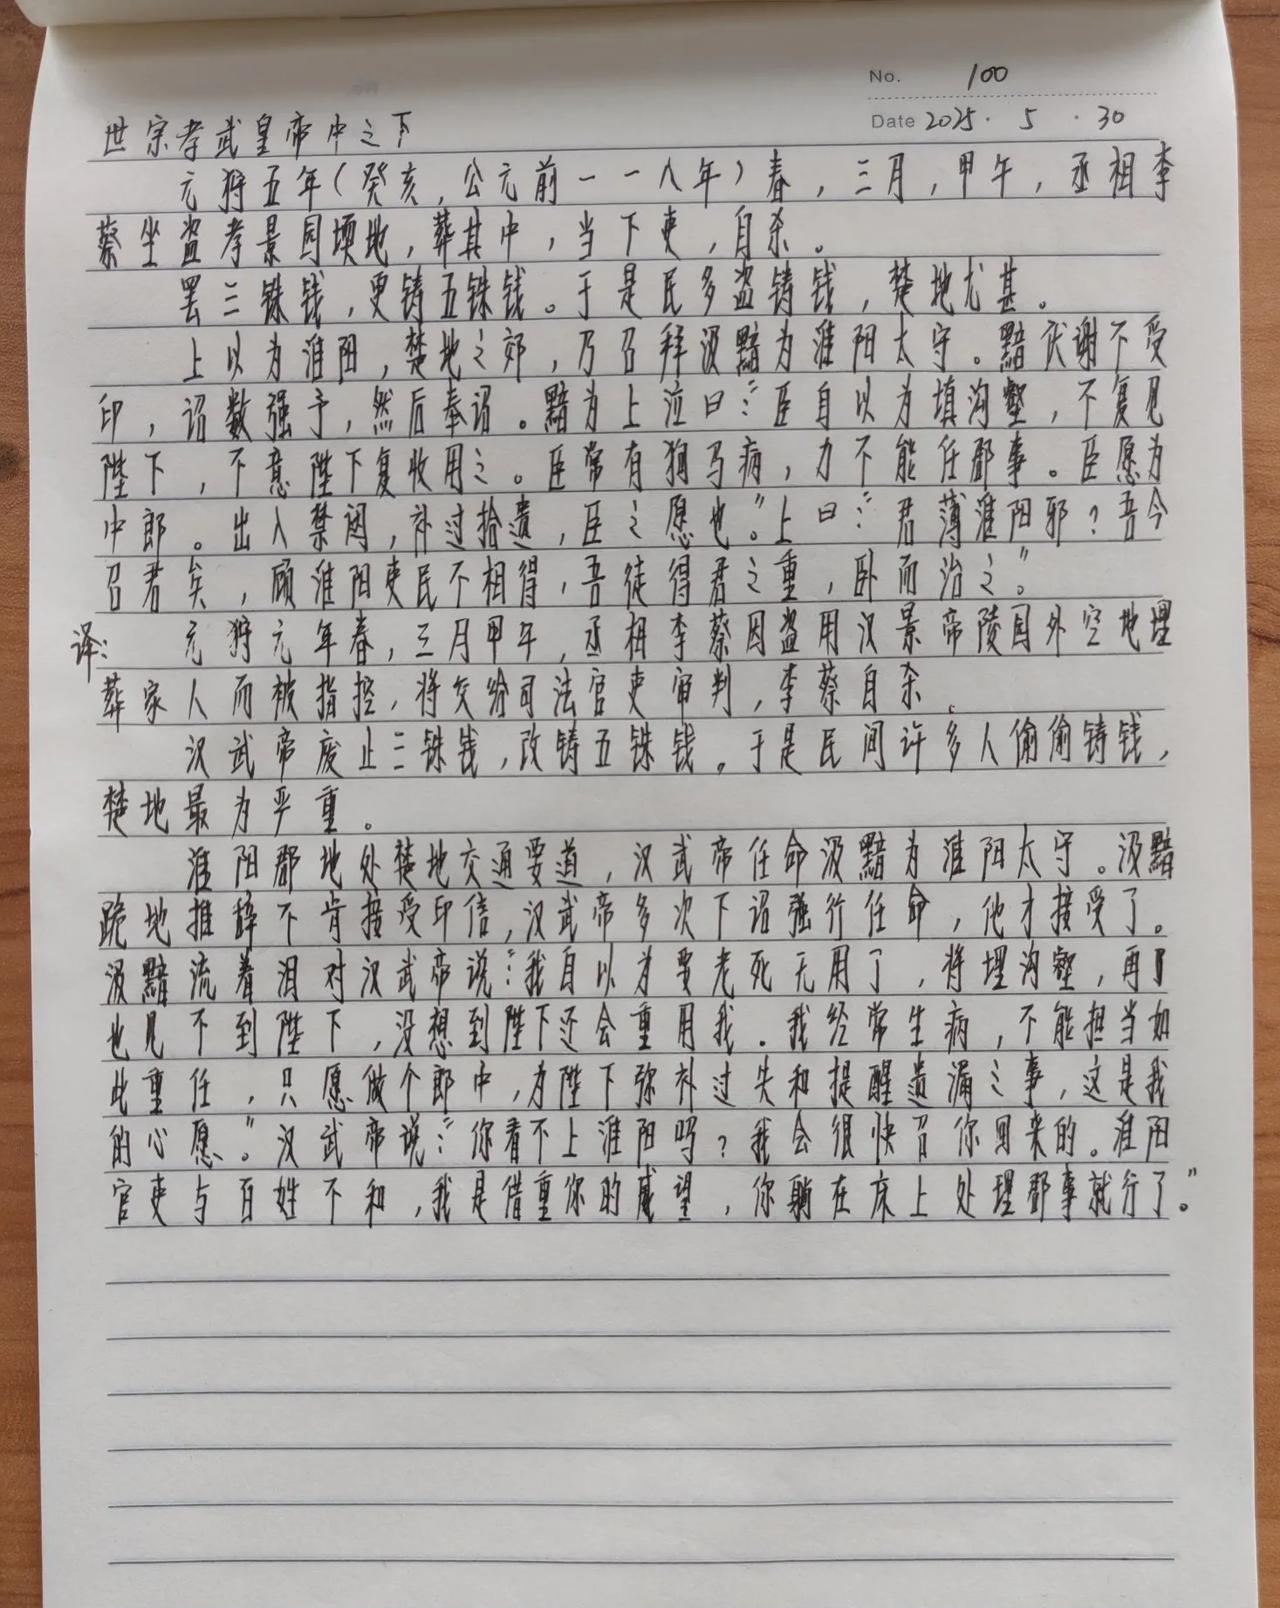 No. 100
Date 2025 · 5 · 30
世宗孝武皇帝中之下
元狩五年（癸亥，公元前一一八年）春，三月，甲午，丞相李
蔡坐盗孝景园堧地，葬其中，当下吏，自杀。
罢三铢钱，更铸五铢钱。于是民多盗铸钱，楚地尤甚。
上以为淮阳，楚地之郊，乃召拜汲黯为淮阳太守。黯伏谢不受
印，诏数强予，然后奉诏。黯为上泣曰：“臣自以为填沟壑，不复见
陛下，不意陛下复收用之。臣常有狗马病，力不能任郡事。臣愿为
中郎。出入禁闼，补过拾遗，臣之愿也。”上曰：“君薄淮阳邪？吾今
召君矣，顾淮阳吏民不相得，吾徒得君之重，卧而治之。”
译：元狩元年春，三月甲午，丞相李蔡因盗用汉景帝陵园外空地埋
葬家人而被指控，将交给司法官吏审判，李蔡自杀。
汉武帝废止三铢钱，改铸五铢钱。于是民间许多人偷偷铸钱，
楚地最为严重。
淮阳郡地处楚地交通要道，汉武帝任命汲黯为淮阳太守。汲黯
跪地推辞不肯接受印信，汉武帝多次下诏强行任命，他才接受了。
汲黯流着泪对汉武帝说：“我自以为要老死无用了，将埋沟壑，再了
也见不到陛下，没想到陛下还会重用我。我经常生病，不能担当如
此重任，只愿做个郎中，为陛下弥补过失和提醒遗漏之事，这是我
的心愿。”汉武帝说：“你看不上淮阳吗？我会很快召你回来的。淮阳
官吏与百姓不和，我是借重你的威望，你躺在床上处理郡事就行了。”